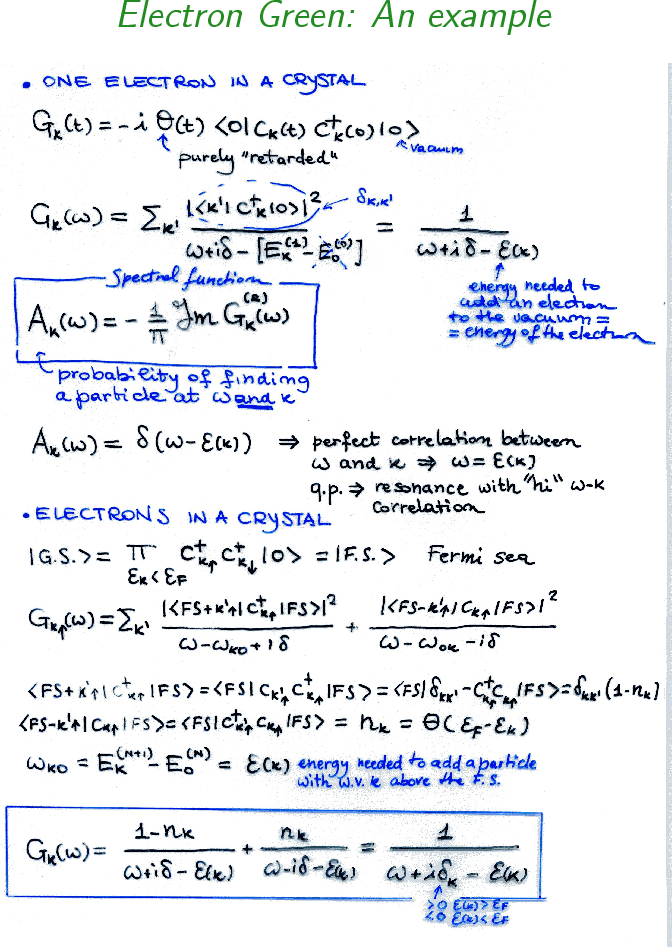 Electron Green: An example
• ONE ELECTRON IN A CRYSTAL
G_k(t) = -i Θ(t) <0| C_k(t) C_k^†(0) |0>
vacuum
purely "retarded"
G_k(ω) = Σ_k' |<k'| C_k^† |0>|^2 / (ω+iδ - [E_k^(1) - E_0^(0)]) = 1 / (ω+iδ - ε(k))
δ_k,k'
Spectral function
A_k(ω) = - 1/π Im G_k^(R)(ω)
energy needed to
add an electron
to the vacuum =
= energy of the electron
probability of finding
a particle at ω and k
A_k(ω) = δ(ω - ε(k)) ⇒ perfect correlation between
ω and k ⇒ ω = ε(k)
q.p. ⇒ resonance with "hi" ω-k
correlation
• ELECTRONS IN A CRYSTAL
|G.S.> = Π_{ε_k < ε_F} C_k↑^† C_k↓^† |0> = |F.S.> Fermi sea
G_k↑(ω) = Σ_k' |<FS+k'↑| C_k↑^† |FS>|^2 / (ω - ω_k0 + iδ) + |<FS-k'↑| C_k↑ |FS>|^2 / (ω - ω_0k - iδ)
<FS+k'↑| C_k↑^† |FS> = <FS| C_k'↑ C_k↑^† |FS> = <FS| δ_kk' - C_k^† C_k'↑ |FS> = δ_kk' (1-n_k)
<FS-k'↑| C_k↑ |FS> = <FS| C_k'↑^† C_k↑ |FS> = n_k = Θ(ε_F - ε_k)
ω_k0 = E_k^(N+1) - E_0^(N) = ε(k) energy needed to add a particle
with w.v. k above the F.S.
G_k(ω) = (1-n_k) / (ω+iδ - ε(k)) + n_k / (ω-iδ - ε(k)) = 1 / (ω+iδ_k - ε(k))
>0 ε(k)>ε_F
<0 ε(k)<ε_F